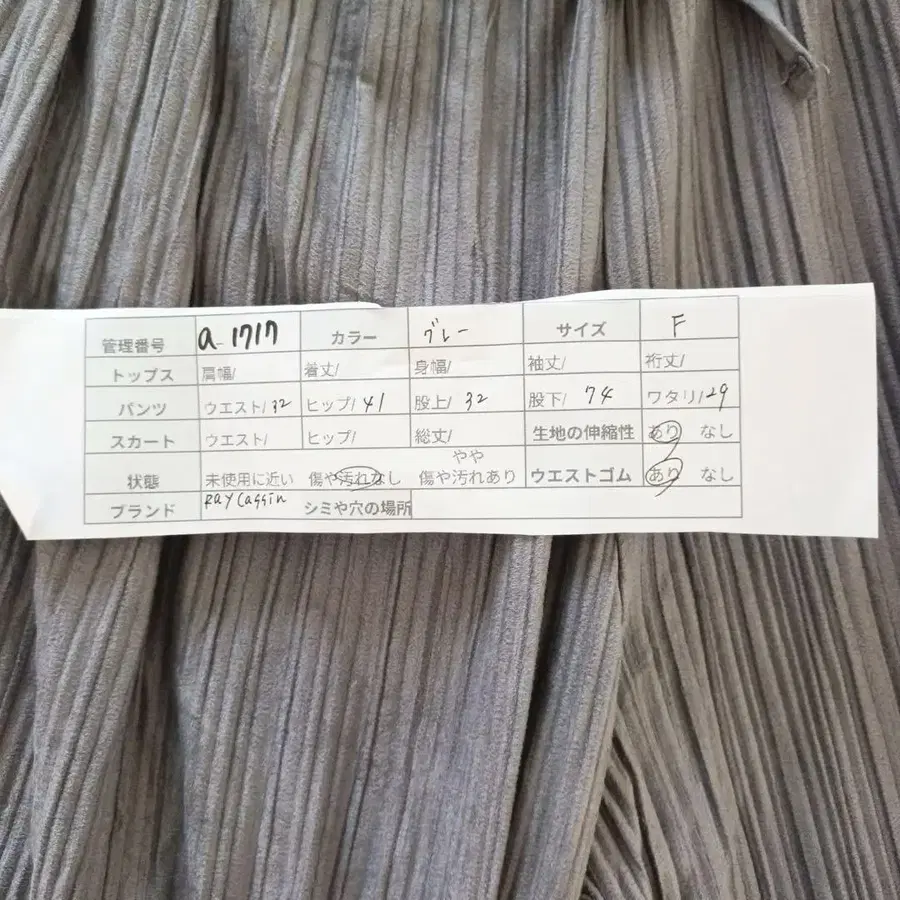 管理番号 a-1717 カラー グレー サイズ F
トップス 肩幅/ 着丈/ 身幅/ 袖丈/ 裄丈/
パンツ ウエスト/32 ヒップ/41 股上/32 股下/74 ワタリ/29
スカート ウエスト/ ヒップ/ 総丈/ 生地の伸縮性 あり なし
状態 未使用に近い 傷や汚れなし やや傷や汚れあり ウエストゴム あり なし
ブランド RAY Cassin シミや穴の場所